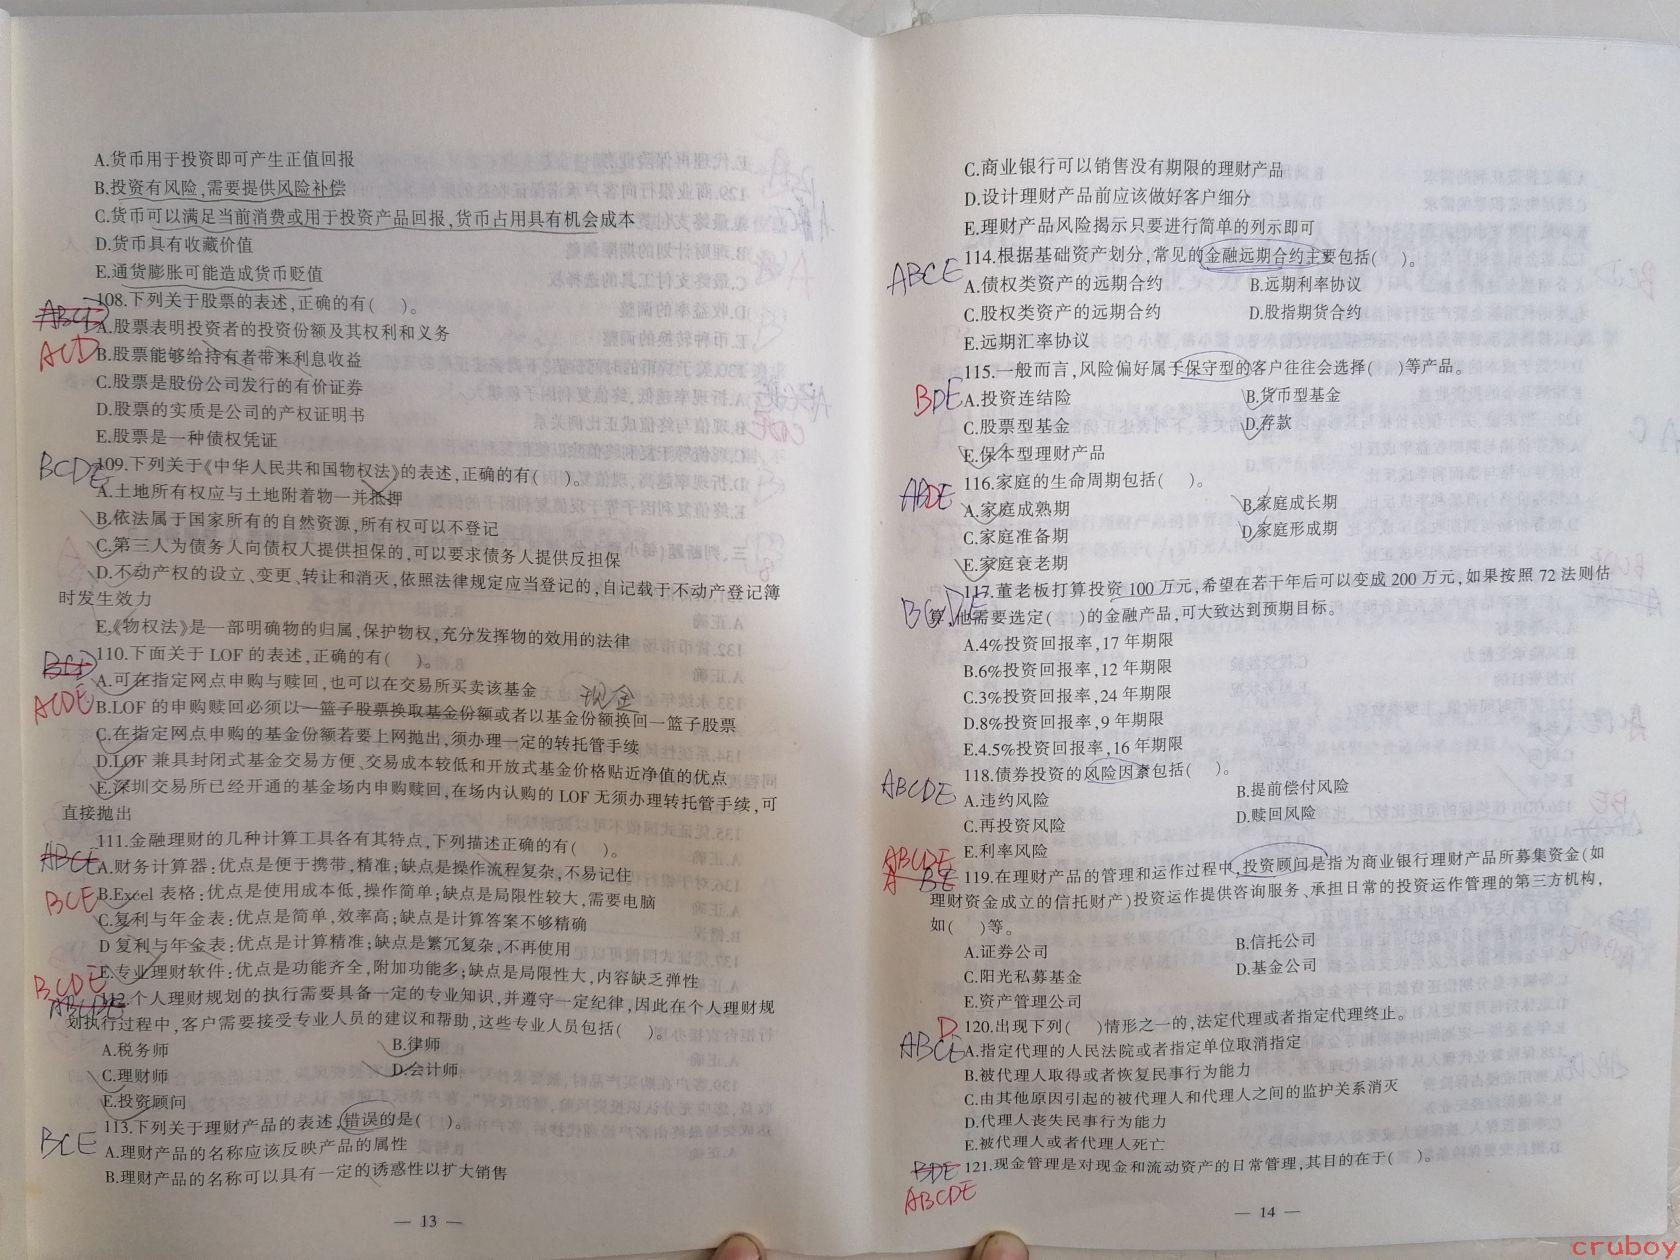 A.货币用于投资即可产生正值回报
B.投资有风险,需要提供风险补偿
C.货币可以满足当前消费或用于投资产品回报,货币占用具有机会成本
D.货币具有收藏价值
E.通货膨胀可能造成货币贬值
108.下列关于股票的表述,正确的有(　　)。
ABCD
A.股票表明投资者的投资份额及其权利和义务
ACD
B.股票能够给持有者带来利息收益
C.股票是股份公司发行的有价证券
D.股票的实质是公司的产权证明书
E.股票是一种债权凭证
BCDE
109.下列关于《中华人民共和国物权法》的表述,正确的有(　　)。
A.土地所有权应与土地附着物一并抵押
B.依法属于国家所有的自然资源,所有权可以不登记
C.第三人为债务人向债权人提供担保的,可以要求债务人提供反担保
D.不动产权的设立、变更、转让和消灭,依照法律规定应当登记的,自记载于不动产登记簿
时发生效力
E.《物权法》是一部明确物的归属,保护物权,充分发挥物的效用的法律
BCD
110.下面关于 LOF 的表述,正确的有(　　)。
A.可在指定网点申购与赎回,也可以在交易所买卖该基金
现金
ACDE
B.LOF 的申购赎回必须以一篮子股票换取基金份额或者以基金份额换回一篮子股票
C.在指定网点申购的基金份额若要上网抛出,须办理一定的转托管手续
D.LOF 兼具封闭式基金交易方便、交易成本较低和开放式基金价格贴近净值的优点
E.深圳交易所已经开通的基金场内申购赎回,在场内认购的 LOF 无须办理转托管手续,可
直接抛出
111.金融理财的几种计算工具各有其特点,下列描述正确的有(　　)。
ABCE
A.财务计算器:优点是便于携带,精准;缺点是操作流程复杂,不易记住
BCE
B.Excel 表格:优点是使用成本低,操作简单;缺点是局限性较大,需要电脑
C.复利与年金表:优点是简单,效率高;缺点是计算答案不够精确
D 复利与年金表:优点是计算精准;缺点是繁冗复杂,不再使用
E.专业理财软件:优点是功能齐全,附加功能多;缺点是局限性大,内容缺乏弹性
BCDE
ABCDE
112.个人理财规划的执行需要具备一定的专业知识,并遵守一定纪律,因此在个人理财规
划执行过程中,客户需要接受专业人员的建议和帮助,这些专业人员包括(　　)。
A.税务师　　B.律师
C.理财师　　D.会计师
E.投资顾问
113.下列关于理财产品的表述,错误的是(　　)。
BCE
A.理财产品的名称应该反映产品的属性
B.理财产品的名称可以具有一定的诱惑性以扩大销售
— 13 —
C.商业银行可以销售没有期限的理财产品
D.设计理财产品前应该做好客户细分
E.理财产品风险揭示只要进行简单的列示即可
ABCE
114.根据基础资产划分,常见的金融远期合约主要包括(　　)。
A.债权类资产的远期合约　　B.远期利率协议
C.股权类资产的远期合约　　D.股指期货合约
E.远期汇率协议
115.一般而言,风险偏好属于保守型的客户往往会选择(　　)等产品。
BDE
A.投资连结险　　B.货币型基金
C.股票型基金　　D.存款
E.保本型理财产品
116.家庭的生命周期包括(　　)。
ABDE
A.家庭成熟期　　B.家庭成长期
C.家庭准备期　　D.家庭形成期
E.家庭衰老期
117.董老板打算投资 100 万元,希望在若干年后可以变成 200 万元,如果按照 72 法则估
BCDE
算,他需要选定(　　)的金融产品,可大致达到预期目标。
A.4%投资回报率,17 年期限
B.6%投资回报率,12 年期限
C.3%投资回报率,24 年期限
D.8%投资回报率,9 年期限
E.4.5%投资回报率,16 年期限
118.债券投资的风险因素包括(　　)。
ABCDE
A.违约风险　　B.提前偿付风险
C.再投资风险　　D.赎回风险
E.利率风险
ABCDE
119.在理财产品的管理和运作过程中,投资顾问是指为商业银行理财产品所募集资金(如
理财资金成立的信托财产)投资运作提供咨询服务、承担日常的投资运作管理的第三方机构,
如(　　)等。
A.证券公司　　B.信托公司
C.阳光私募基金　　D.基金公司
E.资产管理公司
D
120.出现下列(　　)情形之一的,法定代理或者指定代理终止。
ABCE
A.指定代理的人民法院或者指定单位取消指定
B.被代理人取得或者恢复民事行为能力
C.由其他原因引起的被代理人和代理人之间的监护关系消灭
D.代理人丧失民事行为能力
E.被代理人或者代理人死亡
BDE
121.现金管理是对现金和流动资产的日常管理,其目的在于(　　)。
ABCDE
— 14 —
cruboy